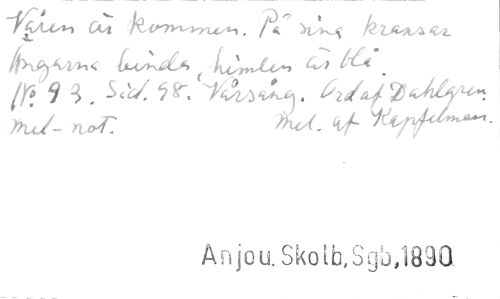 Våren är kommen. På sina kransar
ängarna binda, himlen är blå.
No. 93. Sid. 98. Vårsång. Ord af Dahlgren.
Mel-not. Mel. af Kapfelman.
Anjou. Skolb, Sgb, 1890